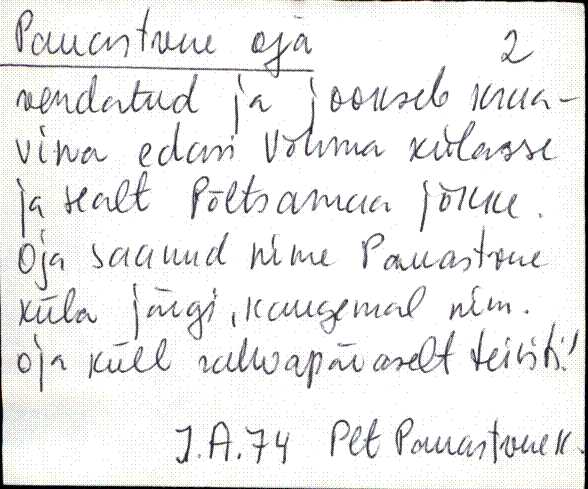 Pauastvere oja 2
vendatud ja jookseb kraa-
vina edasi Võhma külasse
ja sealt Põltsamaa jõkke.
Oja saanud nime Pauastvere
küla järgi, kaugemal nim.
oja küll rahvapäraselt teisiti!
J.A. 74 Plt Pauastvere k.